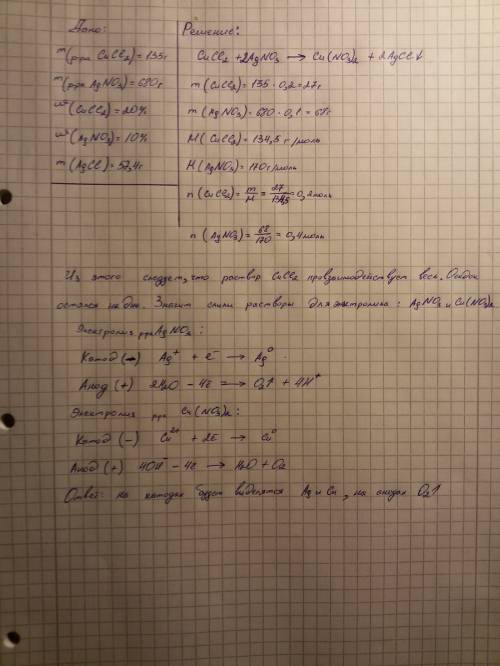 Дано:
Решение:
m(р-ра CuCl2)=135г
m(р-ра AgNO3)=680г
ω(CuCl2)=20%
ω(AgNO3)=10%
m(AgCl)=57,4г
CuCl2 +2AgNO3 → Cu(NO3)2 + 2AgCl↓
m(CuCl2)=135·0,2=27г
m(AgNO3)=680·0,1=68г
M(CuCl2)=134,5 г/моль
M(AgNO3)=170г/моль
n(CuCl2)=m/M=27/134,5=0,2моль
n(AgNO3)=68/170=0,4моль
Из этого следует, что раствор CuCl2 провзаимодействует весь. Осадок
остался на дне. Значит слили растворы для электролиза: AgNO3 и Cu(NO3)2
Электролиз р-ра AgNO3:
Катод (-) Ag+ + e- → Ag0
Анод (+) 2H2O - 4e → O2↑ + 4H+
Электролиз р-ра Cu(NO3)2:
Катод (-) Cu2+ + 2e → Cu0
Анод (+) 4OH- - 4e → H2O + O2
Ответ: на катодах будет выделятся Ag и Cu, на анодах O2↑